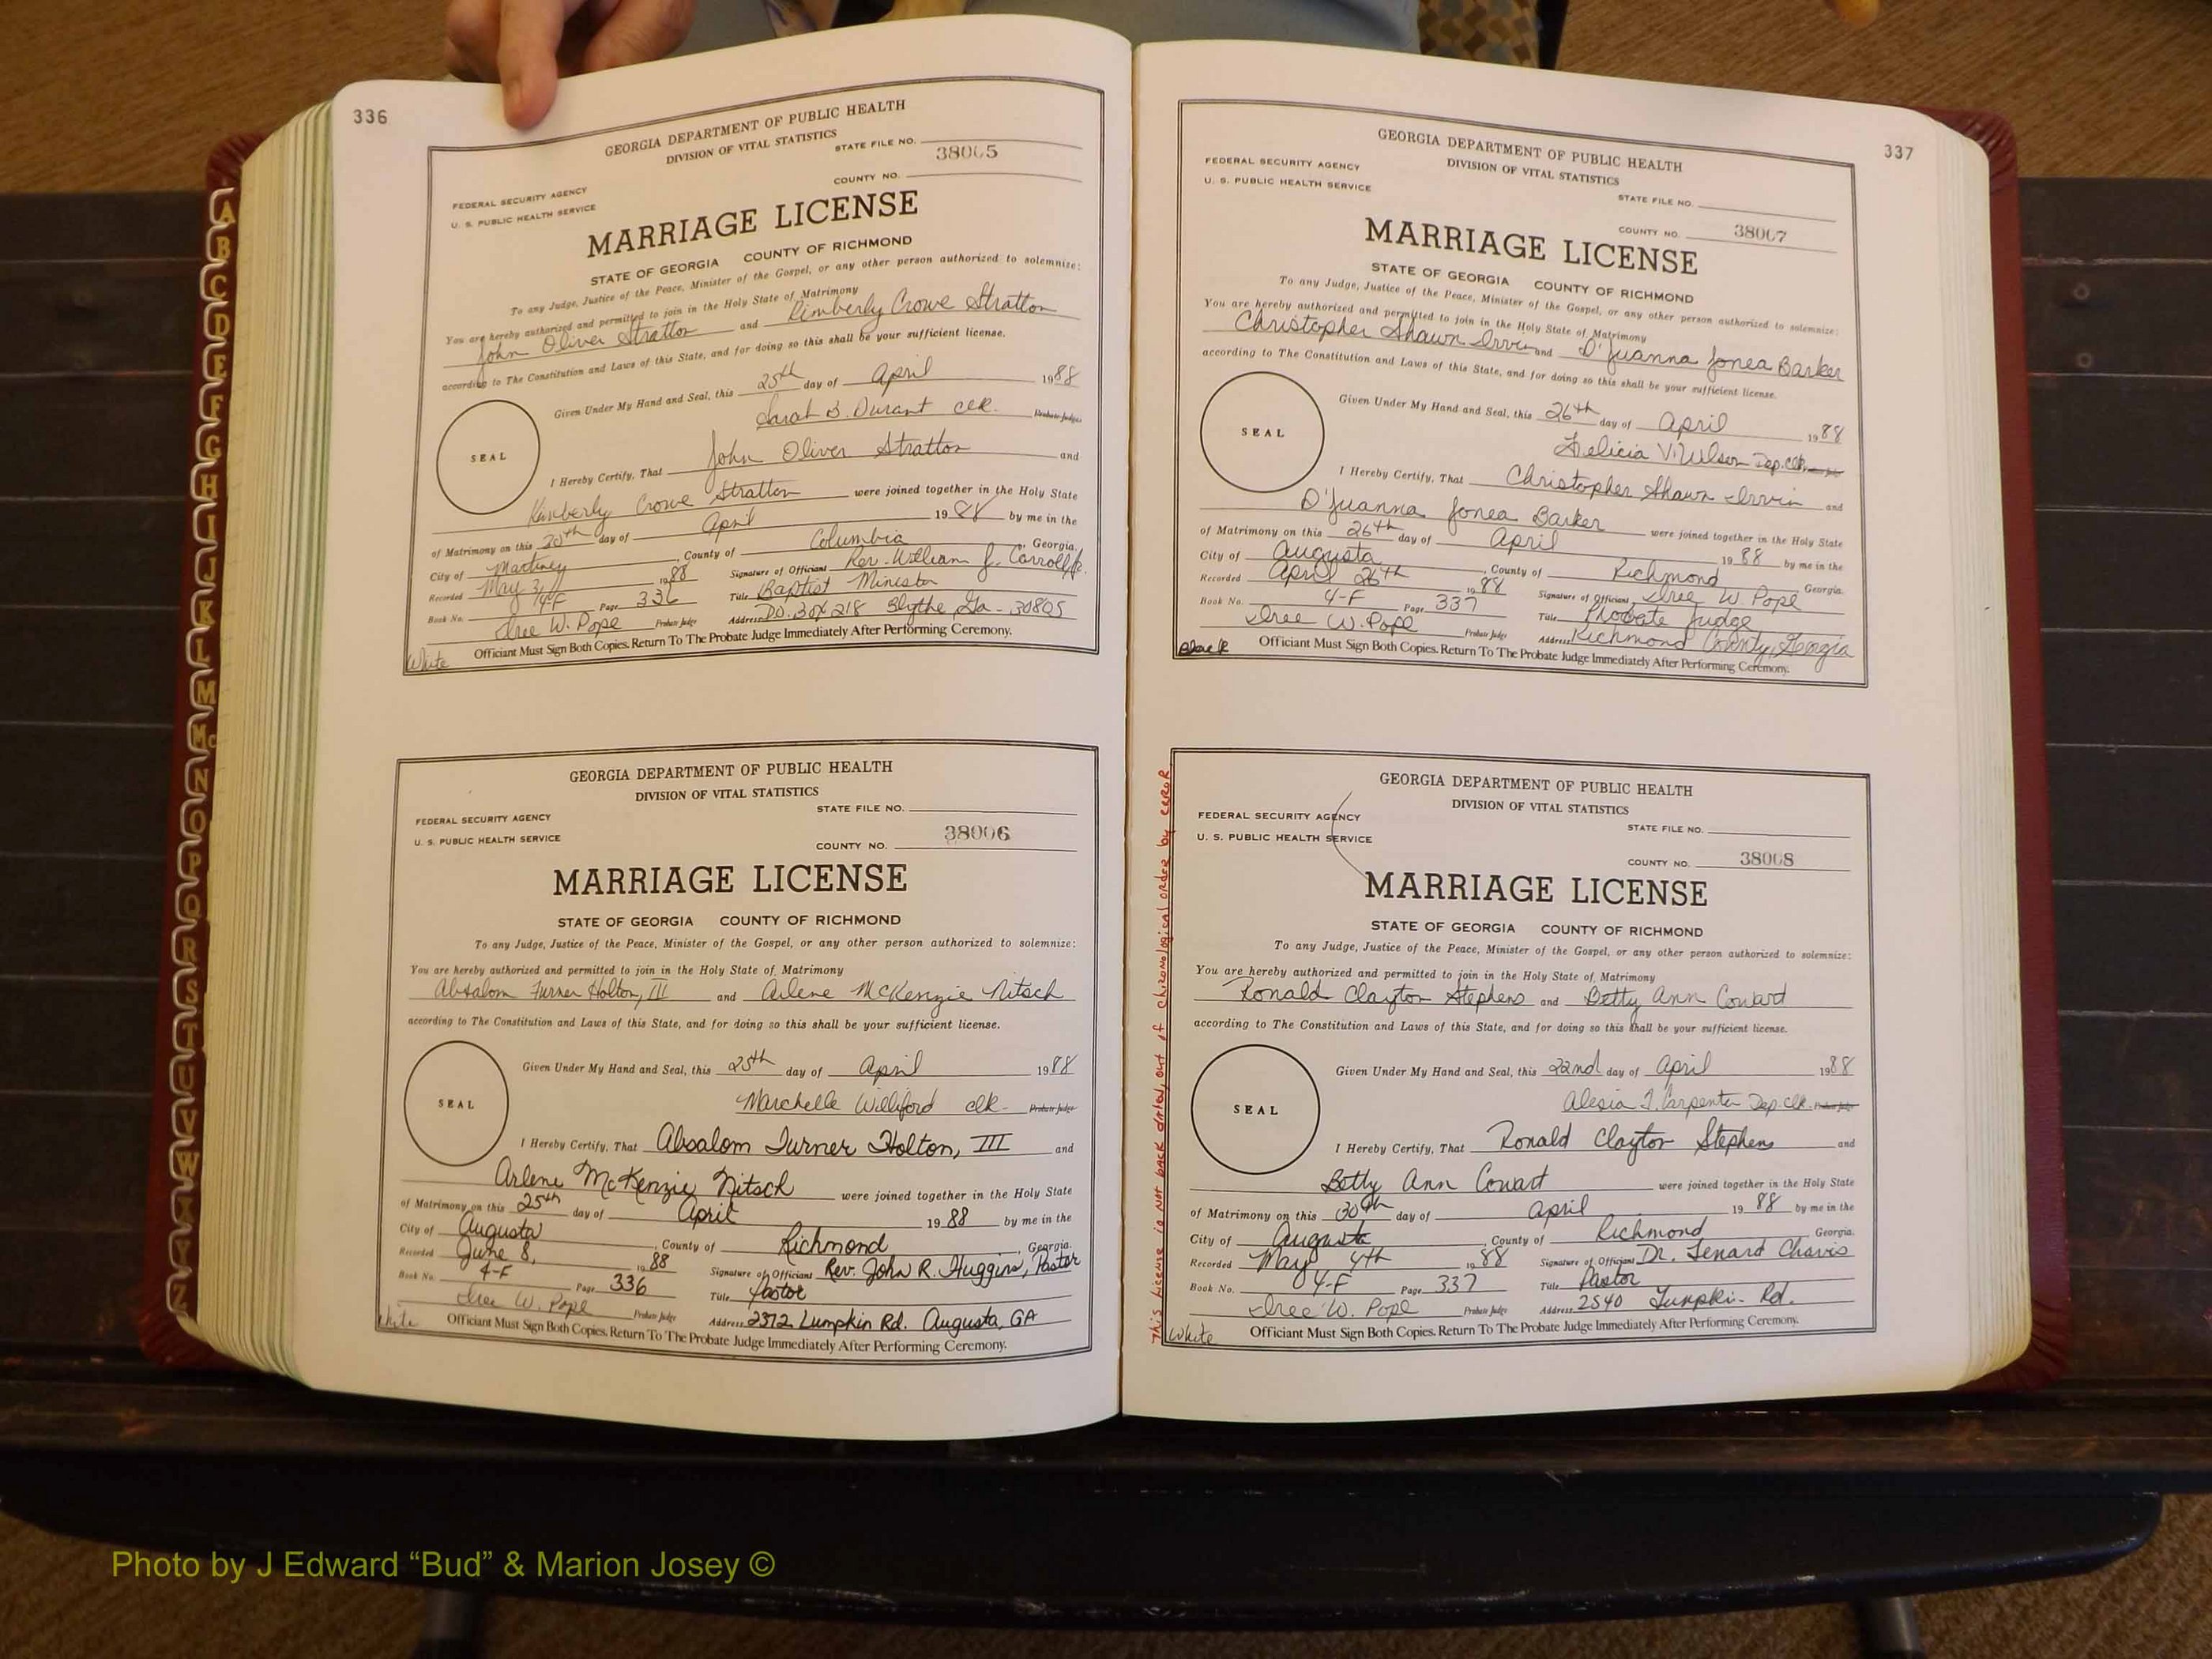 336
GEORGIA DEPARTMENT OF PUBLIC HEALTH
DIVISION OF VITAL STATISTICS
STATE FILE NO.
38005
FEDERAL SECURITY AGENCY
COUNTY NO.
U. S. PUBLIC HEALTH SERVICE
MARRIAGE LICENSE
STATE OF GEORGIA COUNTY OF RICHMOND
To any Judge, Justice of the Peace, Minister of the Gospel, or any other person authorized to solemnize:
You are hereby authorized and permitted to join in the Holy State of Matrimony
John Oliver Stratton and Kimberly Crowe Stratton
according to The Constitution and Laws of this State, and for doing so this shall be your sufficient license.
Given Under My Hand and Seal, this 25th day of April 1988
Sarah B. Durant clk. Probate Judge
SEAL
I Hereby Certify, That John Oliver Stratton and
Kimberly Crowe Stratton were joined together in the Holy State
of Matrimony on this 30th day of April 1988 by me in the
City of Martinez, County of Columbia, Georgia.
Recorded May 31 1988 Signature of Officiant Rev. William J. Carroll Jr.
Book No. 4-F Page 336 Title Baptist Minister
Iree W. Pope Probate Judge Address P.O. Box 218 Blythe Ga - 30805
White Officiant Must Sign Both Copies. Return To The Probate Judge Immediately After Performing Ceremony.
GEORGIA DEPARTMENT OF PUBLIC HEALTH
DIVISION OF VITAL STATISTICS
STATE FILE NO.
FEDERAL SECURITY AGENCY
38006
U. S. PUBLIC HEALTH SERVICE
COUNTY NO.
MARRIAGE LICENSE
STATE OF GEORGIA COUNTY OF RICHMOND
To any Judge, Justice of the Peace, Minister of the Gospel, or any other person authorized to solemnize:
You are hereby authorized and permitted to join in the Holy State of Matrimony
Absalom Turner Holton, III and Arlene McKenzie Nitsch
according to The Constitution and Laws of this State, and for doing so this shall be your sufficient license.
Given Under My Hand and Seal, this 25th day of April 1988
Marchelle Williford clk- Probate Judge
SEAL
I Hereby Certify, That Absalom Turner Holton, III and
Arlene McKenzie Nitsch were joined together in the Holy State
of Matrimony on this 25th day of April 1988 by me in the
City of Augusta, County of Richmond, Georgia.
Recorded June 8, 1988 Signature of Officiant Rev. John R. Huggins, Pastor
Book No. 4-F Page 336 Title Pastor
Iree W. Pope Probate Judge Address 2372 Lumpkin Rd. Augusta, GA
White Officiant Must Sign Both Copies. Return To The Probate Judge Immediately After Performing Ceremony.
337
GEORGIA DEPARTMENT OF PUBLIC HEALTH
DIVISION OF VITAL STATISTICS
FEDERAL SECURITY AGENCY
U. S. PUBLIC HEALTH SERVICE
STATE FILE NO.
COUNTY NO. 38007
MARRIAGE LICENSE
STATE OF GEORGIA COUNTY OF RICHMOND
To any Judge, Justice of the Peace, Minister of the Gospel, or any other person authorized to solemnize:
You are hereby authorized and permitted to join in the Holy State of Matrimony
Christopher Shawn Irvin and D'Juanna Jonea Barker
according to The Constitution and Laws of this State, and for doing so this shall be your sufficient license.
Given Under My Hand and Seal, this 26th day of April 1988
Felicia V. Wilson Dep. Clk.
SEAL
I Hereby Certify, That Christopher Shawn Irvin and
D'Juanna Jonea Barker were joined together in the Holy State
of Matrimony on this 26th day of April 1988 by me in the
City of Augusta, County of Richmond Georgia.
Recorded April 26th 1988 Signature of Officiant Iree W. Pope
Book No. 4-F Page 337 Title Probate Judge
Iree W. Pope Probate Judge Address Richmond County, Georgia
Black Officiant Must Sign Both Copies. Return To The Probate Judge Immediately After Performing Ceremony.
This License is NOT back dated, out of chronological order by error
GEORGIA DEPARTMENT OF PUBLIC HEALTH
DIVISION OF VITAL STATISTICS
FEDERAL SECURITY AGENCY
STATE FILE NO.
U. S. PUBLIC HEALTH SERVICE
COUNTY NO. 38008
MARRIAGE LICENSE
STATE OF GEORGIA COUNTY OF RICHMOND
To any Judge, Justice of the Peace, Minister of the Gospel, or any other person authorized to solemnize:
You are hereby authorized and permitted to join in the Holy State of Matrimony
Ronald Clayton Stephens and Betty Ann Cowart
according to The Constitution and Laws of this State, and for doing so this shall be your sufficient license.
Given Under My Hand and Seal, this 22nd day of April 1988
Alesia T. Carpenter Dep. Clk. Probate Judge
SEAL
I Hereby Certify, That Ronald Clayton Stephens and
Betty Ann Cowart were joined together in the Holy State
of Matrimony on this 30th day of April 1988 by me in the
City of Augusta, County of Richmond Georgia.
Recorded May 4th 1988 Signature of Officiant Dr. Tenard Chavis
Book No. 4-F Page 337 Title Pastor
Iree W. Pope Probate Judge Address 2540 Lumpkin Rd.
White Officiant Must Sign Both Copies. Return To The Probate Judge Immediately After Performing Ceremony.
A
B
C
D
E
F
G
H
I
J
K
L
M
Mc
N
O
P
Q
R
S
T
U
V
W
X
Y
Z
Photo by J Edward “Bud” & Marion Josey ©